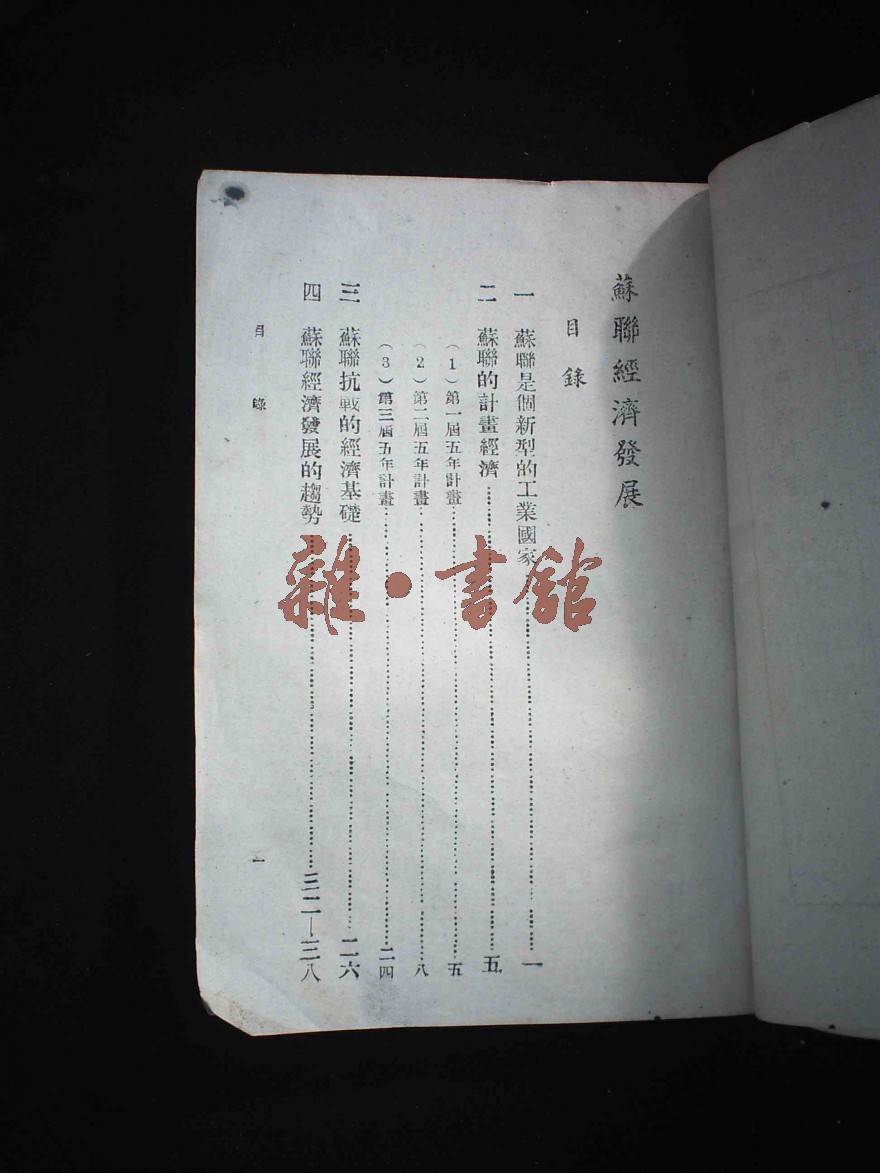 蘇聯經濟發展
目錄
一 蘇聯是個新型的工業國家……一
二 蘇聯的計畫經濟……五
(1)第一屆五年計畫……五
(2)第二屆五年計畫……八
(3)第三屆五年計畫……二四
三 蘇聯抗戰的經濟基礎……二六
四 蘇聯經濟發展的趨勢……三二—三八
目錄
一
雜·書館